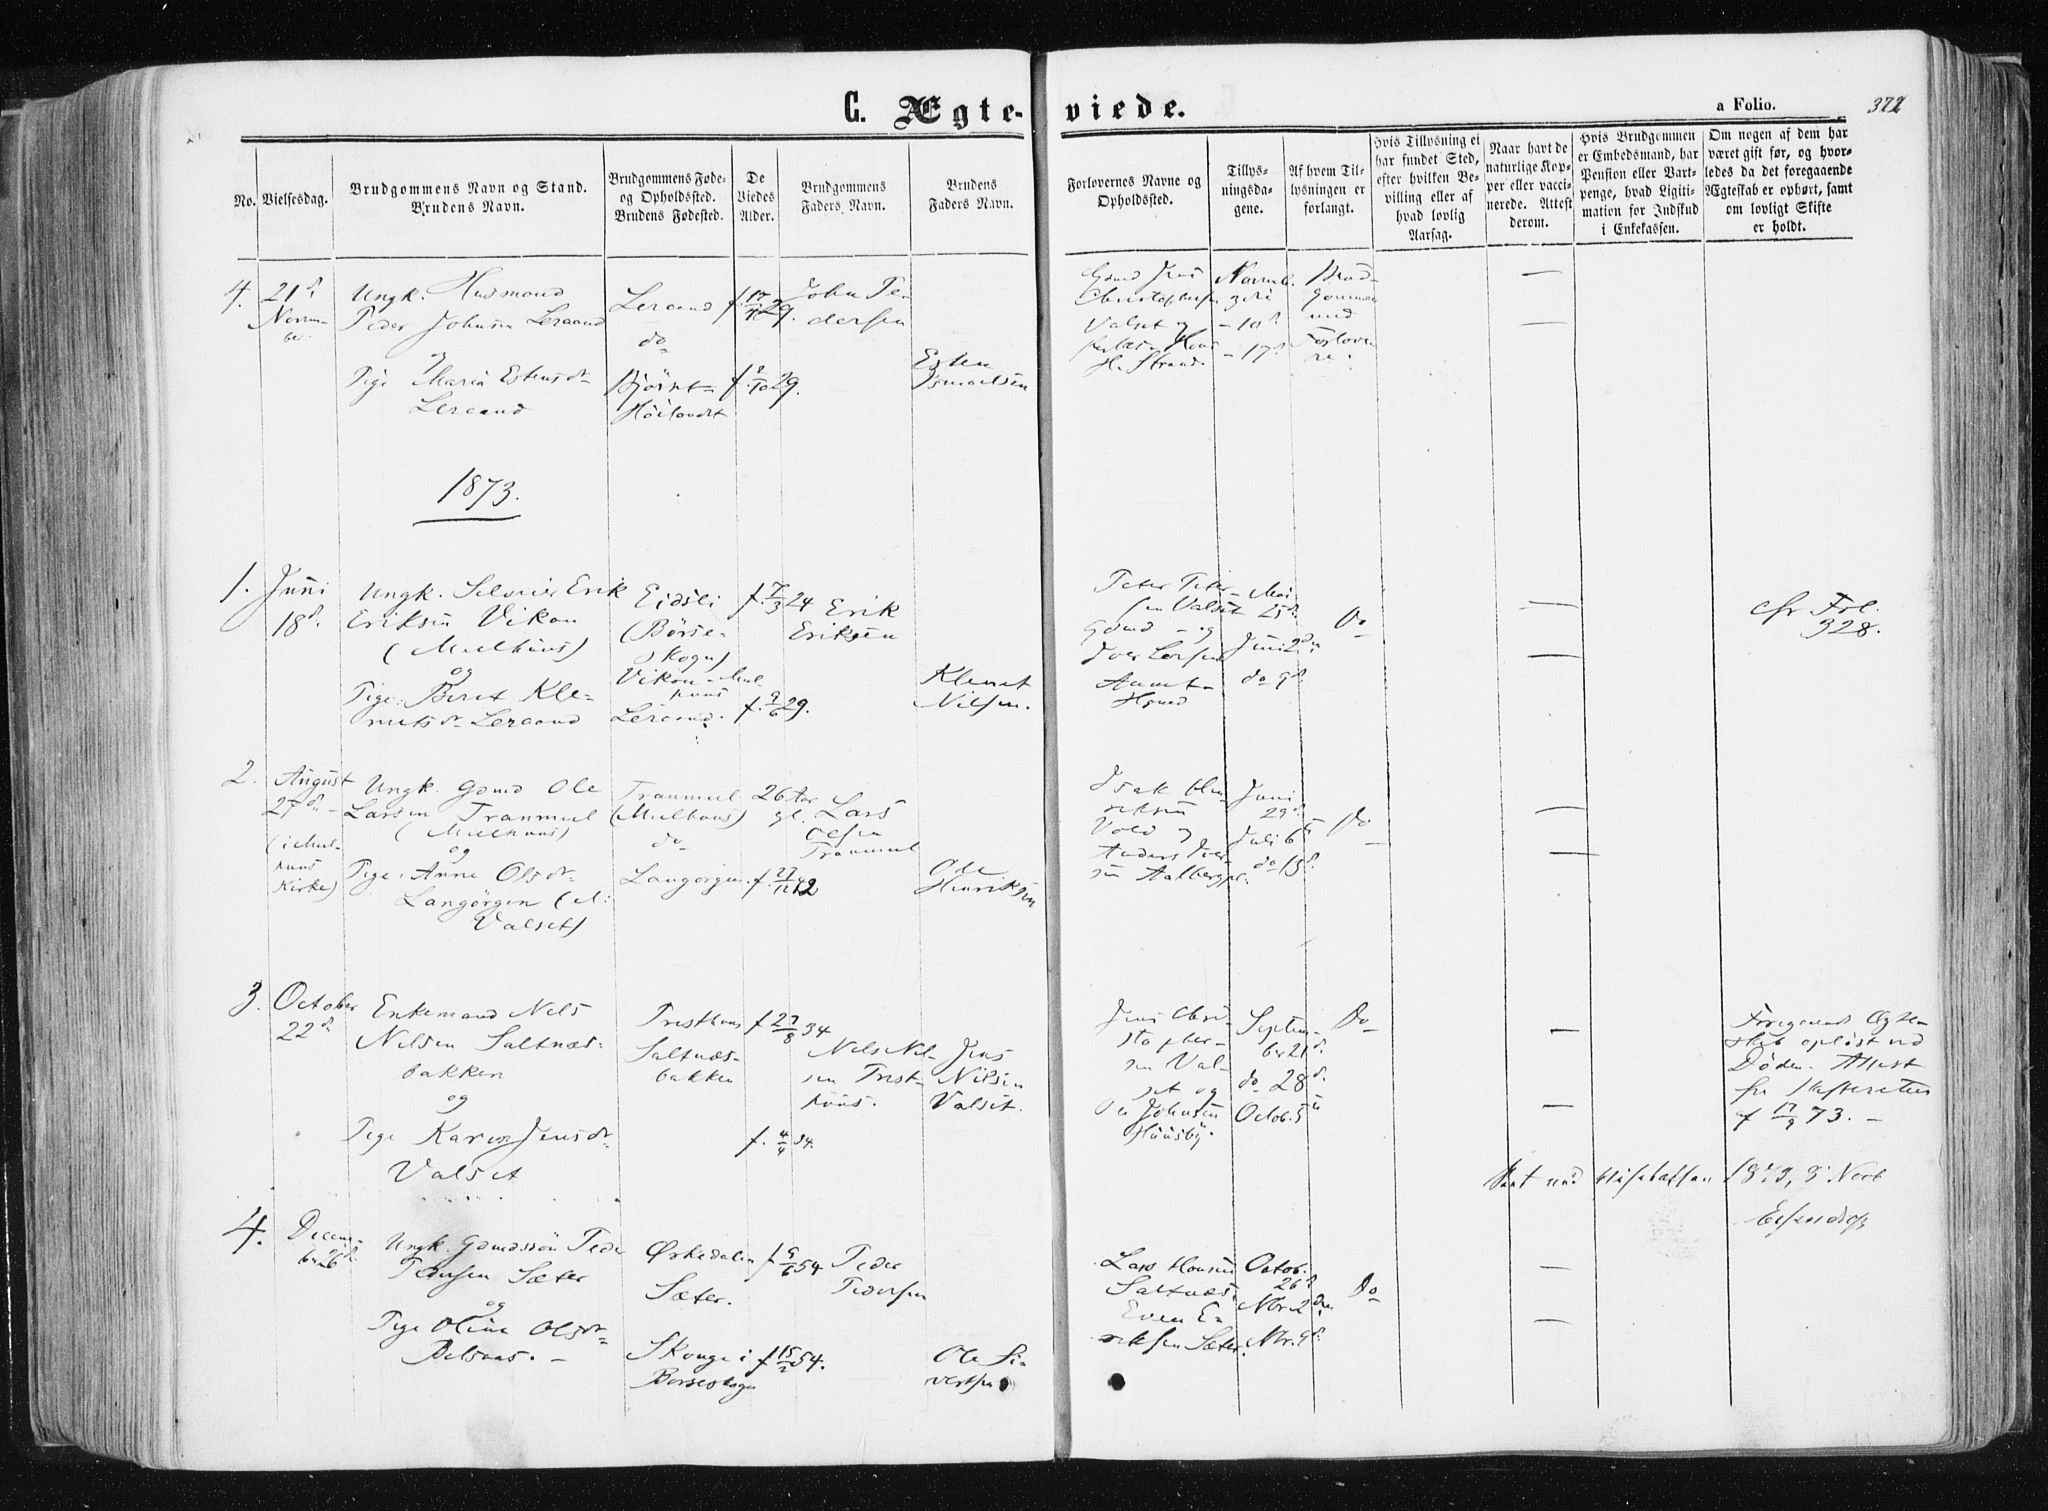 C. Ægte-viede.
a Folio. 372
No.
Vielsesdag.
Brudgommens Navn og Stand.
Brudens Navn.
Brudgommens Føde-
og Opholdssted.
Brudens Fødested.
De
Viedes
Alder.
Brudgommens
Faders Navn.
Brudens
Faders Navn.
Forlovernes Navne og
Opholdssted.
Tillys-
ningsda-
gene.
Af hvem Til-
lysningen er
forlangt.
Hvis Tillysning ei
har fundet Sted,
efter hvilken Be-
villing eller af
hvad lovlig
Aarsag.
Naar havt de
naturlige Kop-
per eller vacci-
nerede. Attest
derom.
Hvis Brudgommen
er Embedsmand, har
Pension eller Vart-
penge, hvad Ligiti-
mation for Indskud
i Enkekassen.
Om nogen af dem har
været gift før, og hvor-
ledes da det foregaaende
Ægteskab er ophørt, samt
om lovligt Skifte
er holdt.
4.
21d.
Novem-
ber.
Ungk. Husmand
Peder Johnsen Leraand
og
Pige Maria Estensdr
Leraand
Leraand
do
Bjørnt-
Høilandet
f. 17/11 29.
f. 2/10 29.
John Pe-
dersen
Esten
Ismaelsen
Gmd Jens
Christophersen
Valset og
H. Strand.
Novmb.
3die
- 10d
- 17d
Brud-
gommen
med
Forlove-
re.
1873.
1.
Juni
18d.
Ungk. Selveier Erik
Eriksen Vikan
(Meelhuus)
og
Pige Beret Kle-
metsdr Leraand
Eidsli
(Børse-
skogn)
Vikan - Mel-
huus
Leraand.
f. 7/3 24
f. 9/6 29.
Erik
Eriksen
Klemet
Nilsen.
Peter Peter-
sen Valset
Gmd - og
Iver Larsen
Mai
25d.
Juni 2den
do 9d.
Do
cfr Fol.
328.
2.
August
27d. -
(i Mel-
huus
Kirke)
Ungk. Gmd Ole
Larsen Tranmæl
(Melhuus)
og
Pige Anne Olsdr
Langørgen (v.
Valset)
Tranmæl
(Melhuus)
do
Langørgen.
26 Aar
gl.
f. 27/12 42
Lars
Olsen
Tranmæl
Ole
Henriksen
Isak Hen-
riksen
Vold og
Anders Iver-
sen Aalbergpl.
Juni
29d.
Juli 6te
do 13d.
Do
3.
October
22d.
Enkemand Nels
Nilsen Saltnæs-
bakken
og
Pige Karen Jensdr
Valset
Tresthuus
Saltnæs-
bakken
f. 27/8 34
f. 4/4 34.
Nels Nil-
sen Trest-
huus.
Jens
Nilsen
Valset.
Jens Chri-
stopher-
sen Val-
set og
Ole Johnsen
Huusby.
Septem-
ber 21d.
do 28d.
Octob. 5te
Do
Foregaaende Ægte-
skab opløst ved
Døden. Attest
fra Skifteretten
af 17/9 73. -
4.
Decem-
ber 26d.
Ungk. Gmdssøn Peder
Pedersen Sæter
og
Pige Oline Olsdr
Bolsaas. -
Ørkedalen
Sæter.
Skauge i
Børseskogn
f. 9/6 54
f. 15/2 54.
Peder
Pedersen
Ole Si-
vertsen
Lars Hansen
Saltnæs.
Even E-
riksen Sæter.
Octob.
26d
Nbr. 2den
Nbr. 9d.
Do